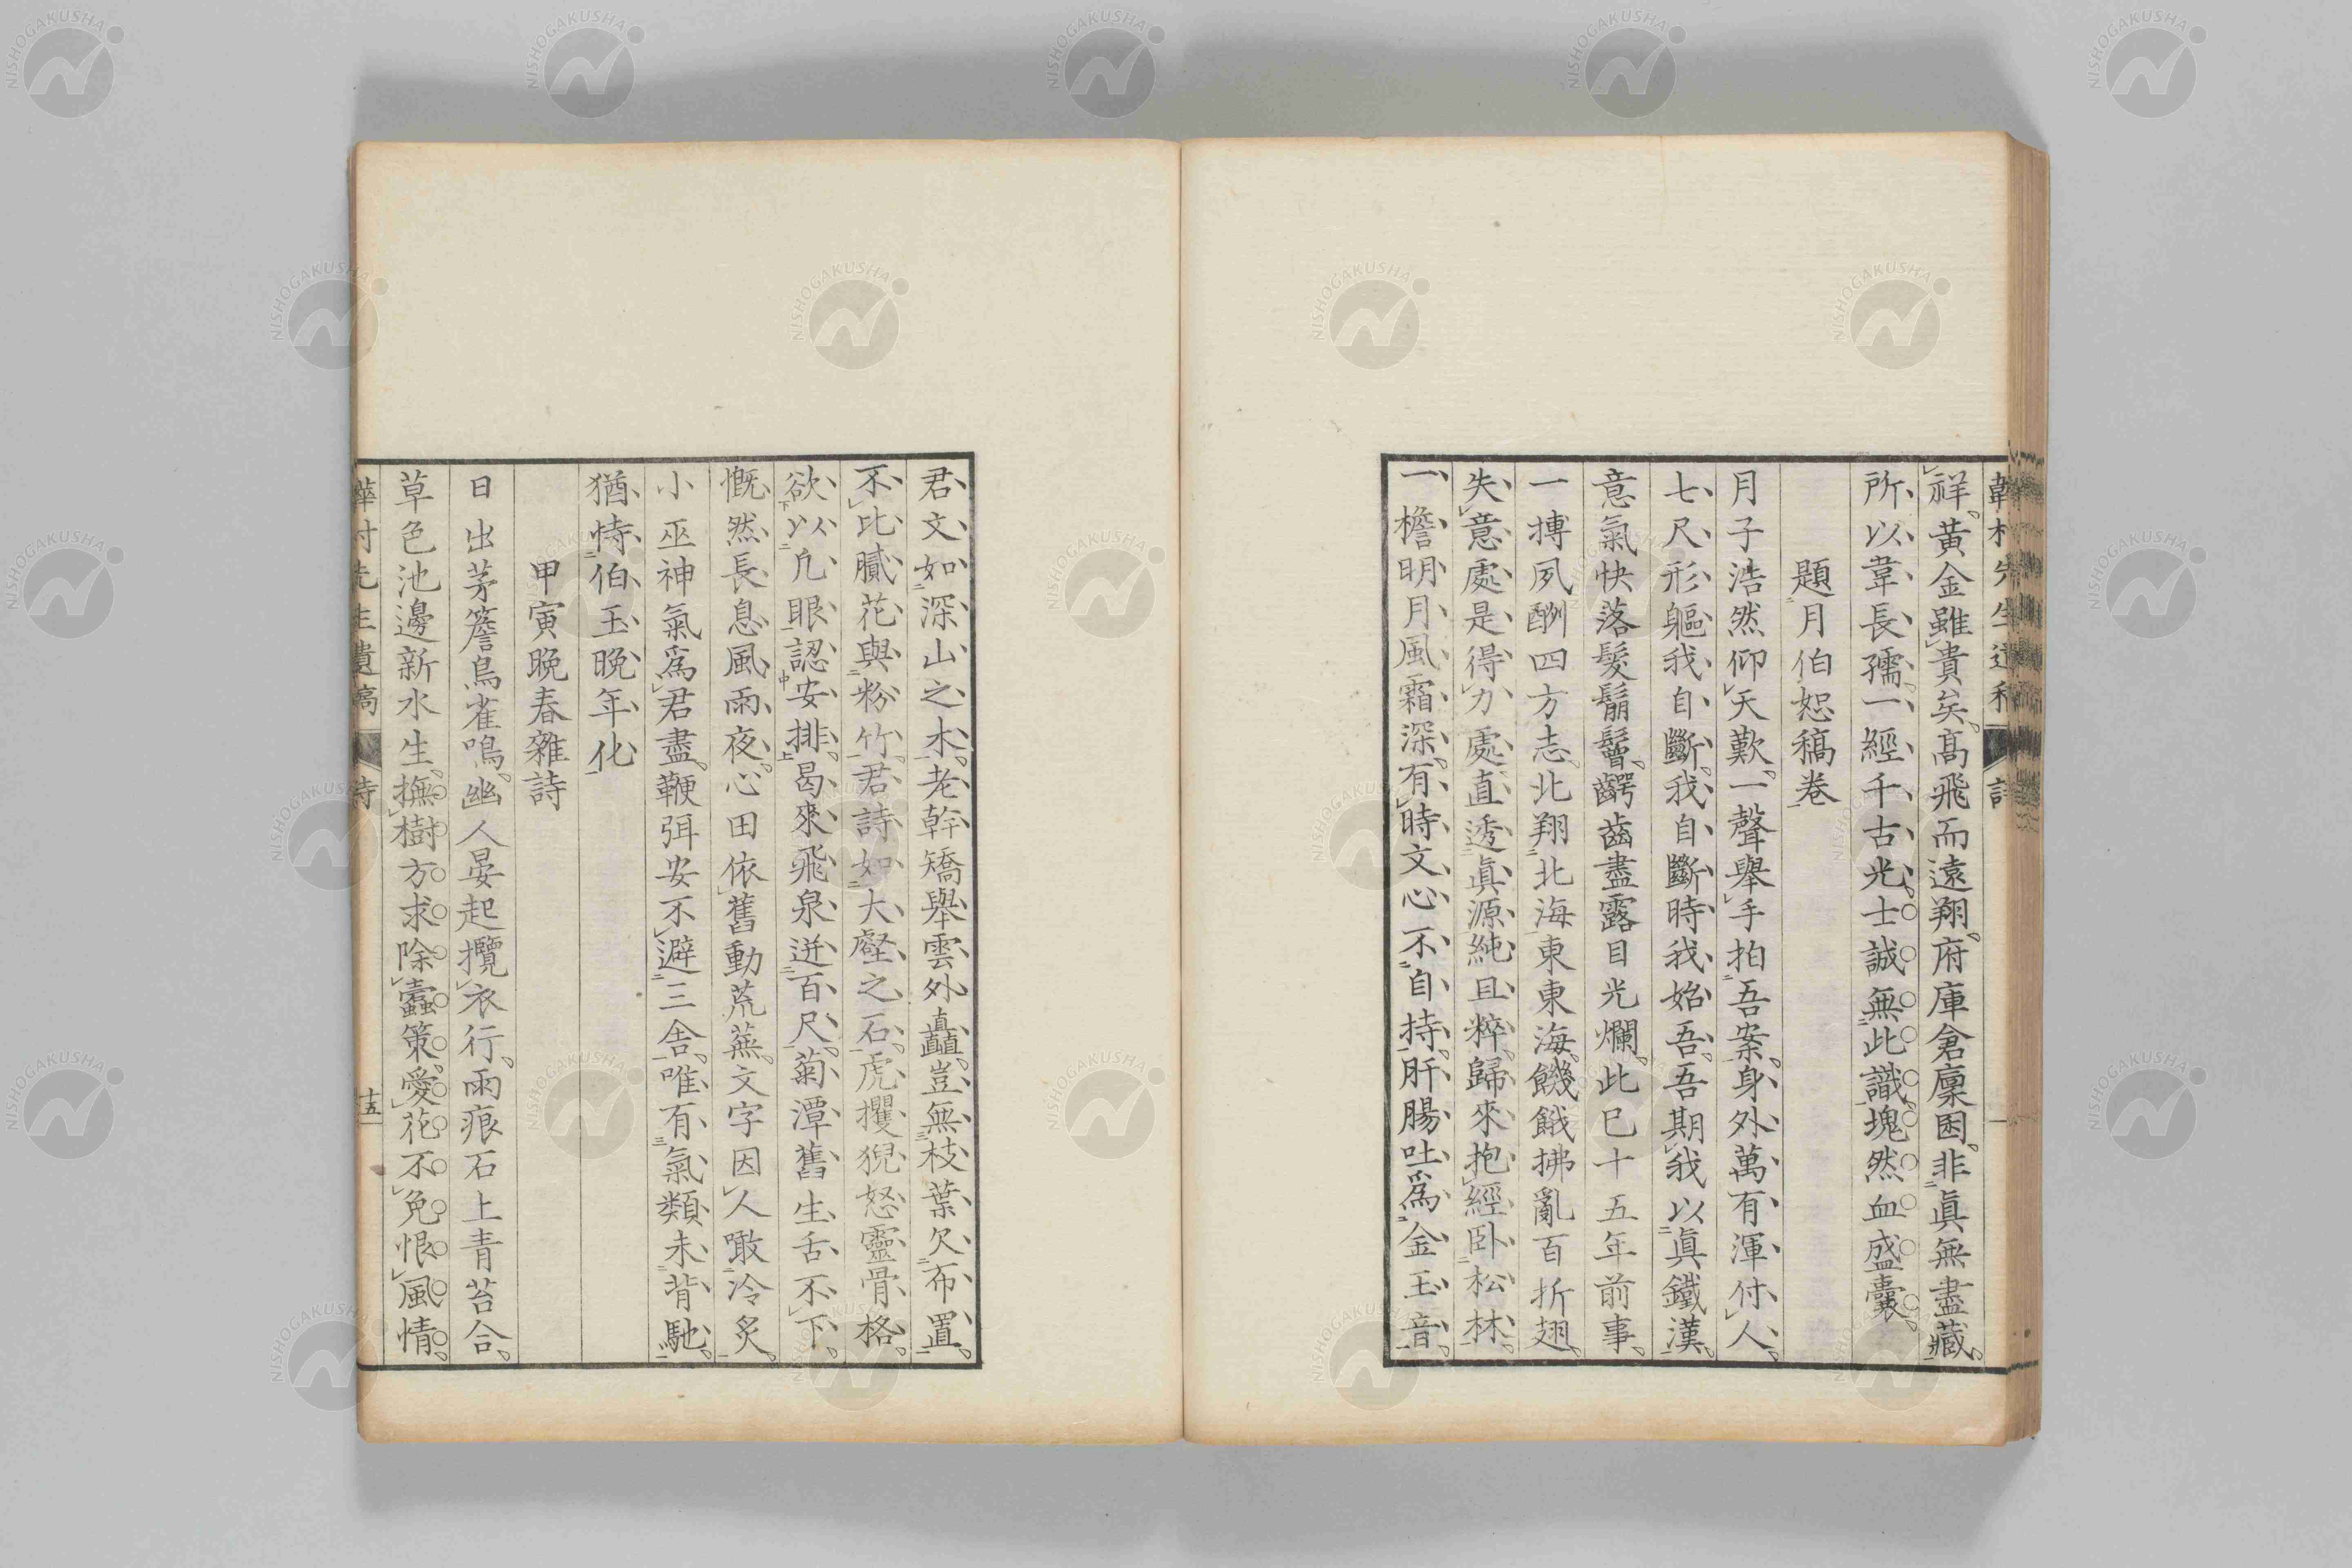 祥。黃金雖貴矣。高飛而遠翔。府庫倉廩囷。非眞無盡藏。
所以韋長孺一經千古光。士誠無此識。塊然血盛囊。
題月伯恕稿卷
月子浩然仰天歎。一聲舉手拍吾案。身外萬有渾付人。
七尺形軀我自斷。我自斷時我始吾。吾期我以眞鐵漢。
意氣快落髮鬅鬙。齶齒盡露目光爛。此已十五年前事。
一搏夙酬四方志。北翔北海東東海。饑餓拂亂百折翅。
失意處是得力處。直透眞源純且粹。歸來抱經臥松林。
一檐明月風霜深。有時文心不自持。肝腸吐爲金玉音。
君文如深山之木。老幹矯舉雲外矗。豈無枝葉欠布置。
不比膩花與粉竹。君詩如大壑之石。虎攫猊怒靈骨格。
欲以凡眼認安排。曷來飛泉迸百尺。菊潭舊生舌不下。
慨然長息風雨夜。心田依舊動荒蕪。文字因人噉冷炙。
小巫神氣爲君盡。鞭弭安不避三舍。唯有氣類未背馳。
猶恃伯玉晚年化
甲寅晚春雜詩
日出茅簷鳥雀鳴。幽人晏起攬衣行。雨痕石上青苔合。
草色池邊新水生。撫樹方求除蠹策。愛花不免恨風情。
韡村先生遺稿 詩 十五
NISHOGAKUSHA